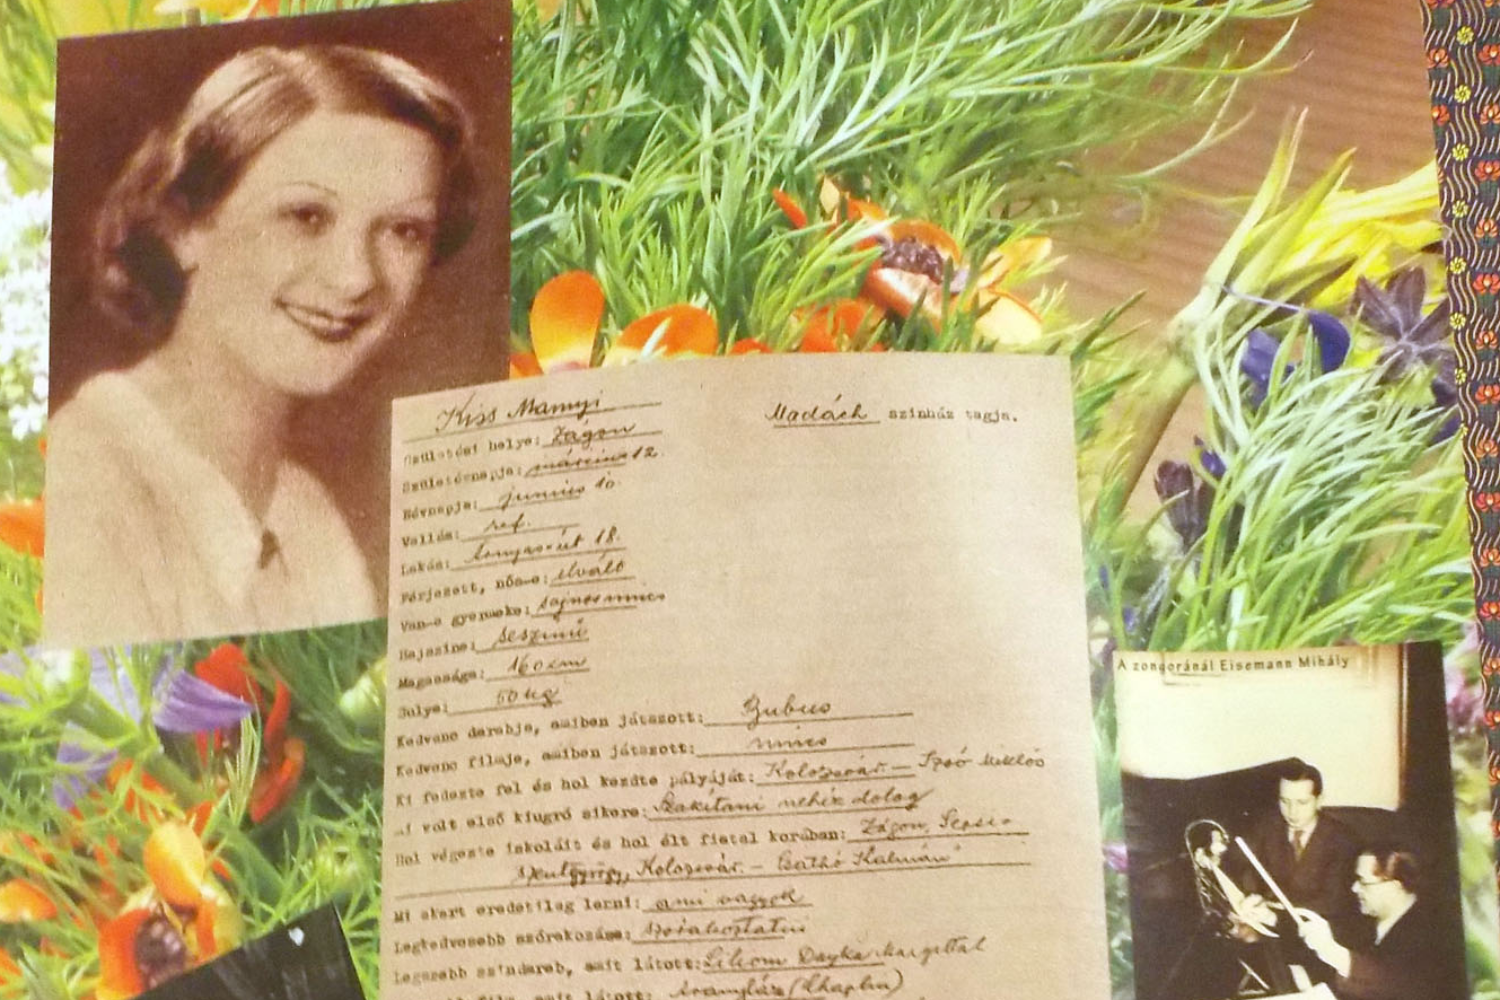 Kiss Manyi
Madách színház tagja.
Születési helye: Zágon
Születésnapja: március 12.
Névnapja: junius 10.
Vallás: ref.
Lakás: Lonyay-út 18.
Férjezett, nős-e: elvált
Van-e gyermeke: sajnos nincs
Hajszíne: seszinü
Magassága: 160 cm
Sulya: 50 kg
Kedvenc darabja, amiben játszott: Bubus
Kedvenc filmje, amiben játszott: nincs
Ki fedezte fel és hol kezdte pályáját: Kolozsvár. - Szoó Miklós
Mi volt első kiugró sikere: Szakítani nehéz dolog
Hol végezte iskoláit és hol élt fiatal korában: Zágon, Sepsi-
szentgyörgy, Kolozsvár. - Kálmán
Mi akart eredetileg lenni: ami vagyok
Legkedvesebb szórakozása:
Legszebb színdarab, amit látott: Liliom Dayka Margittal
film, amit látott: Aranyláz (Chaplin)
A zongoránál Eisemann Mihály